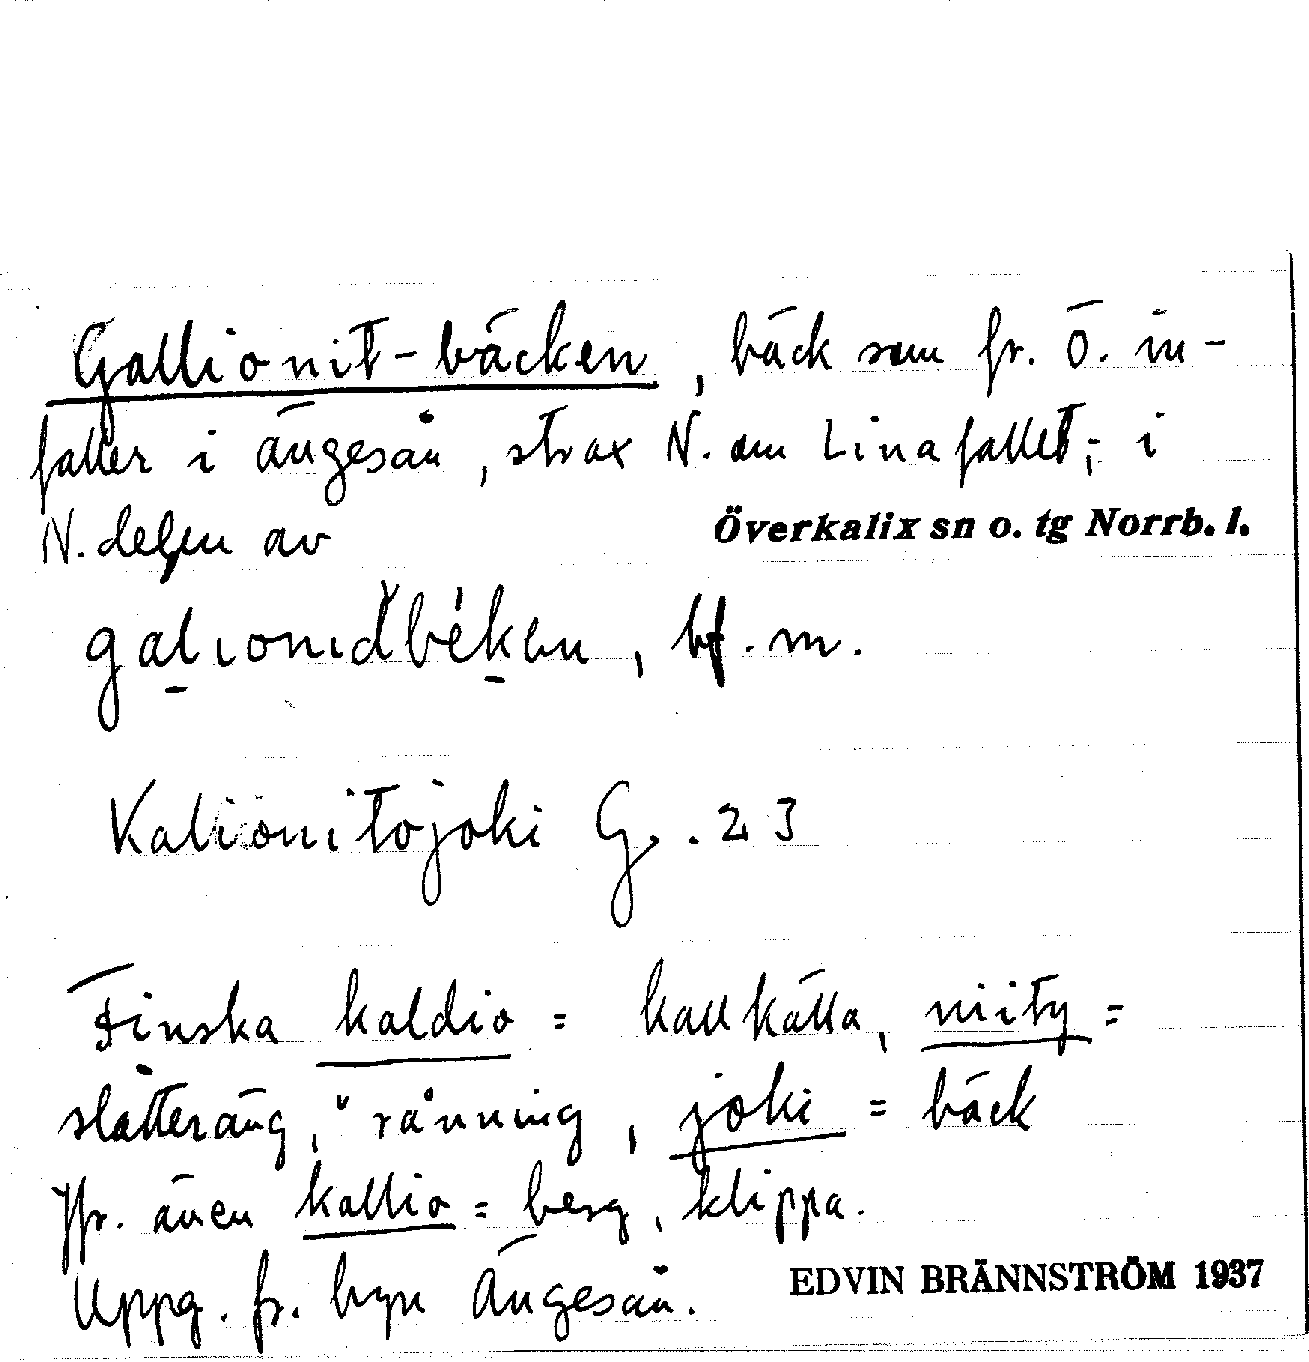 Gallionit-bäcken, bäck som fr. Ö. in-
faller i ängesån, strax N. om Linafallet; i
N. delen av Överkalix sn o. tg Norrb. l.
bf. m.
Kalionitojoki G. . 23
Finska kaldio = kallkälla, niity =
slåtteräng, "rånning, joki = bäck
Jfr. även kallio = berg, klippa.
Uppg. fr. byn Ängesån. EDVIN BRÄNNSTRÖM 1937